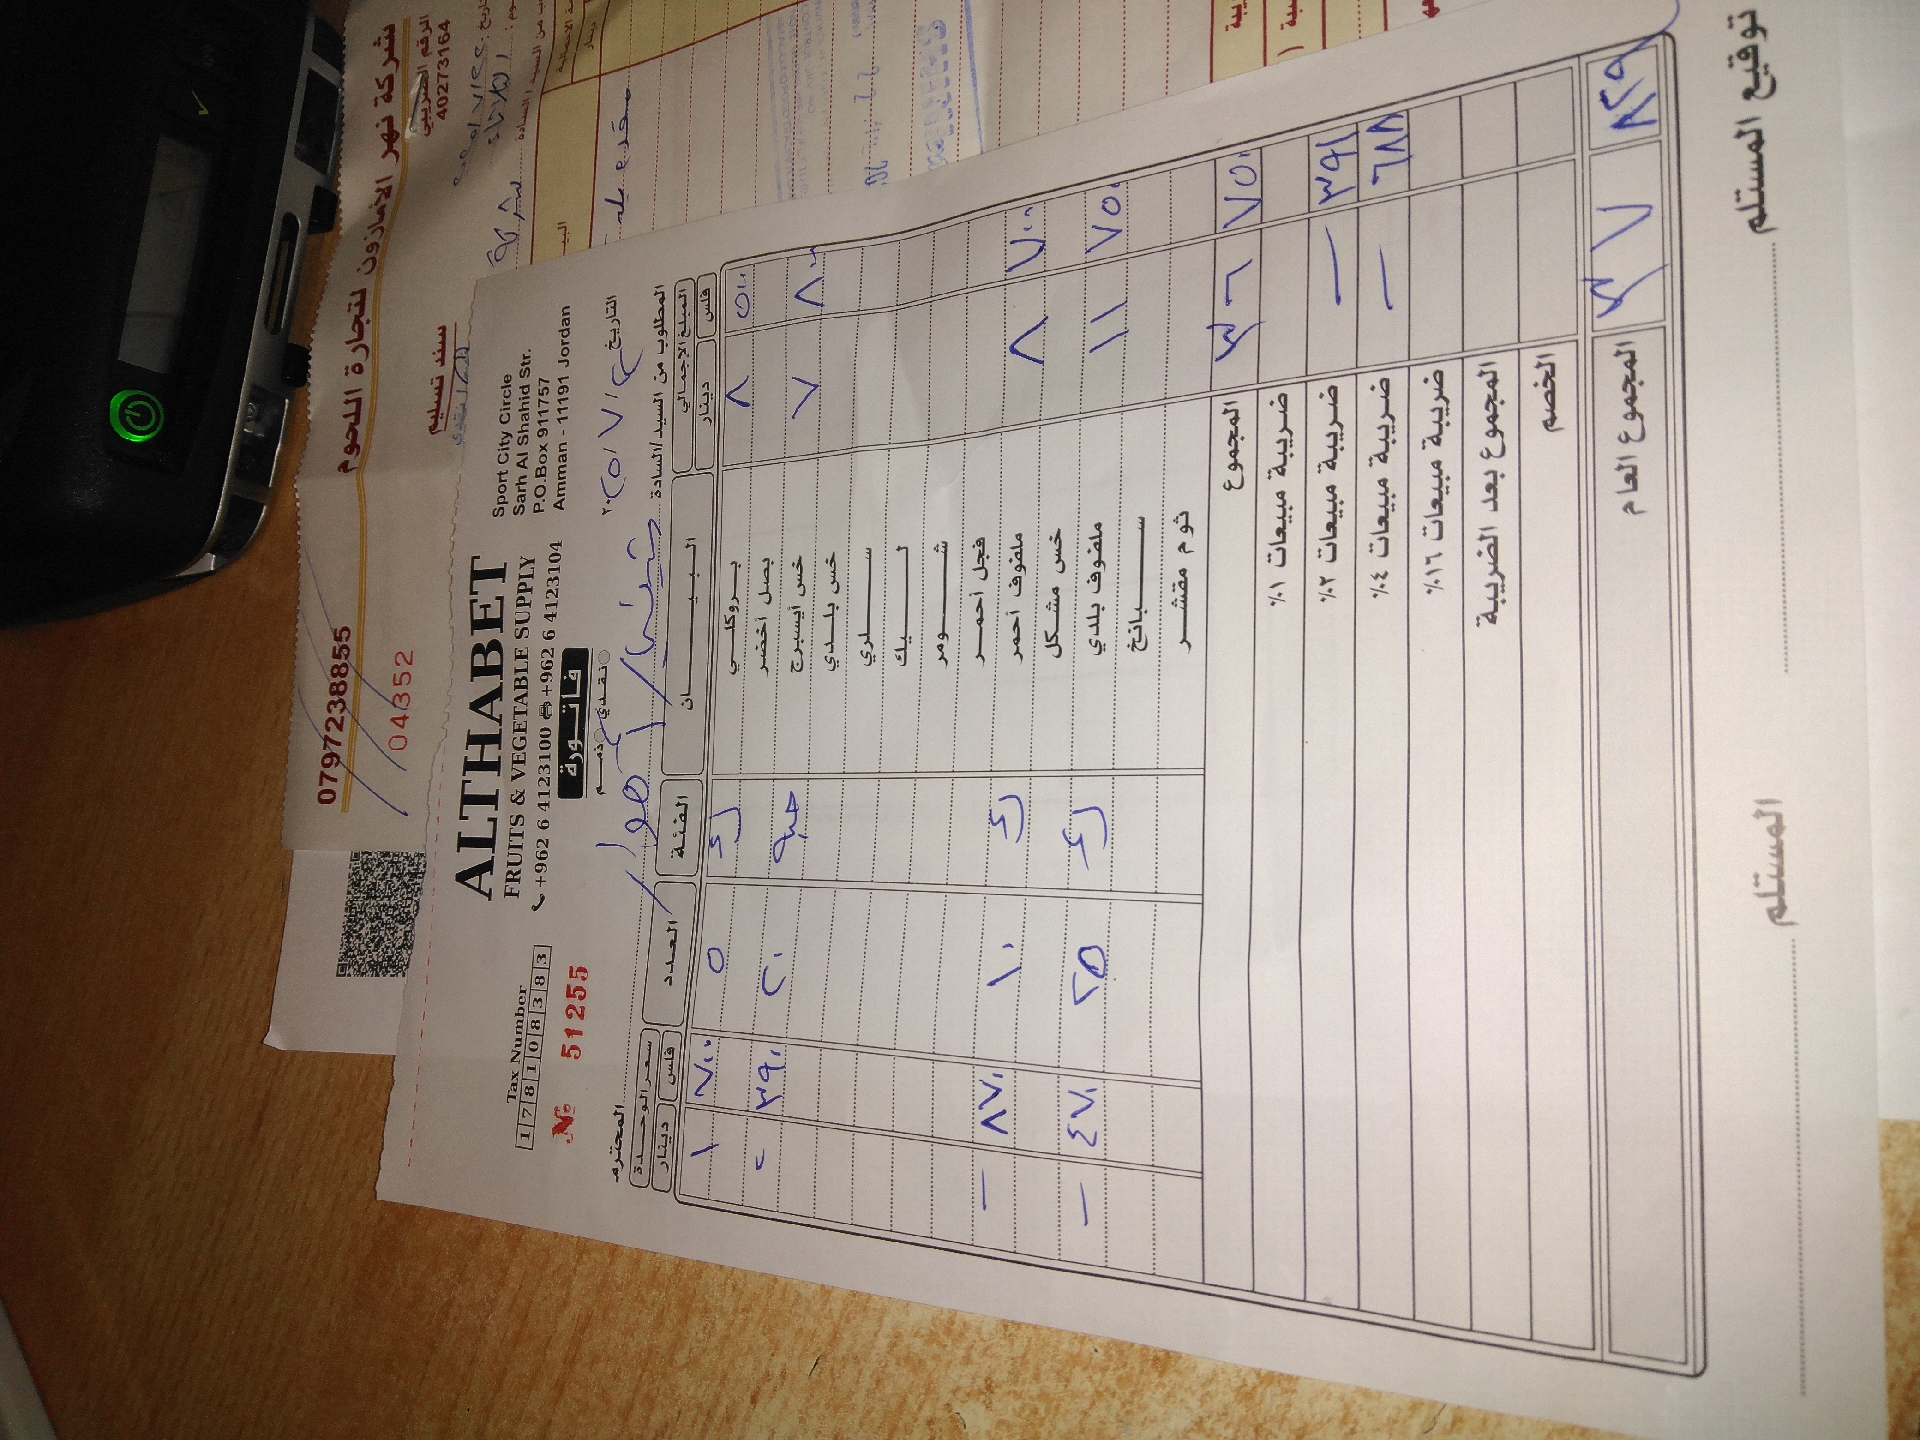 شركة نهر الأمازون لتجارة اللحوم
الرقم الضريبي
40273164
0797238855
سند تسليم
04352
ALTHABET
FRUITS & VEGETABLE SUPPLY
+962 6 4123100 +962 6 4123104
Sport City Circle
Sarh Al Shahid Str.
P.O.Box 911757
Amman - 11191 Jordan
Tax Number
178108383
№ 51255
فاتورة
نقدي ذمم
التاريخ ٢٠٢٥/٧/٤
المطلوب من السيد/السادة المحترم
المبلغ الإجمالي البيان الفئة العدد سعر الوحدة
فلس دينار فلس دينار
٥٠٠ ٨ بروكلي ك ٥ ٧٠٠ ١
بصل أخضر
٨٠٠ ٧ خس أيسبرج حبة ٢٠ ٣٩٠ -
خس بلدي
سلري
ليك
شومر
فجل أحمر
٧٠٠ ٨ ملفوف أحمر ك ١٠ ٨٧٠ -
خس مشكل
٧٥٠ ١١ ملفوف بلدي ك ٢٥ ٤٧٠ -
سبانخ
ثوم مقشر
المجموع ٣٦ ٧٥٠
ضريبة مبيعات ١%
ضريبة مبيعات ٢% - ٣٩١
ضريبة مبيعات ٤% - ٦٨٨
ضريبة مبيعات ١٦%
المجموع بعد الضريبة
الخصم
المجموع العام ٣٧ ٨٢٩
المستلم توقيع المستلم